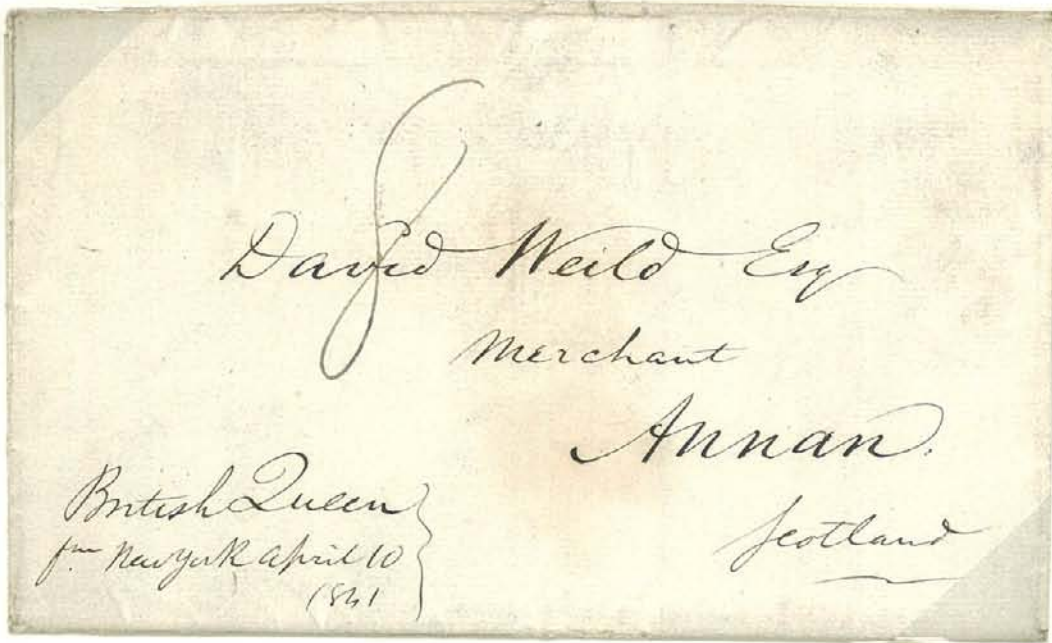 8
David Weild Esq
Merchant
Annan.
Scotland
British Queen
fm New York April 10
1841